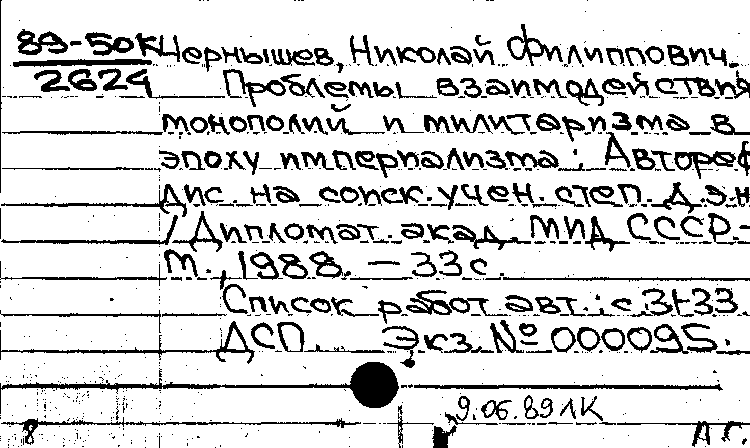 89-50К Чернышев, Николай Филиппович.
2624 Проблемы взаимодействия
монополий и милитаризма в
эпоху империализма: Автореф
дис. на соиск. учен. степ. д.э.н
/ Дипломат. акад. МИД СССР.-
М., 1988. - 33 с.
Список работ авт.: с. 31-33.
ДСП. Экз. № 000095.
9.06.89 ЛК
8 А.Г.